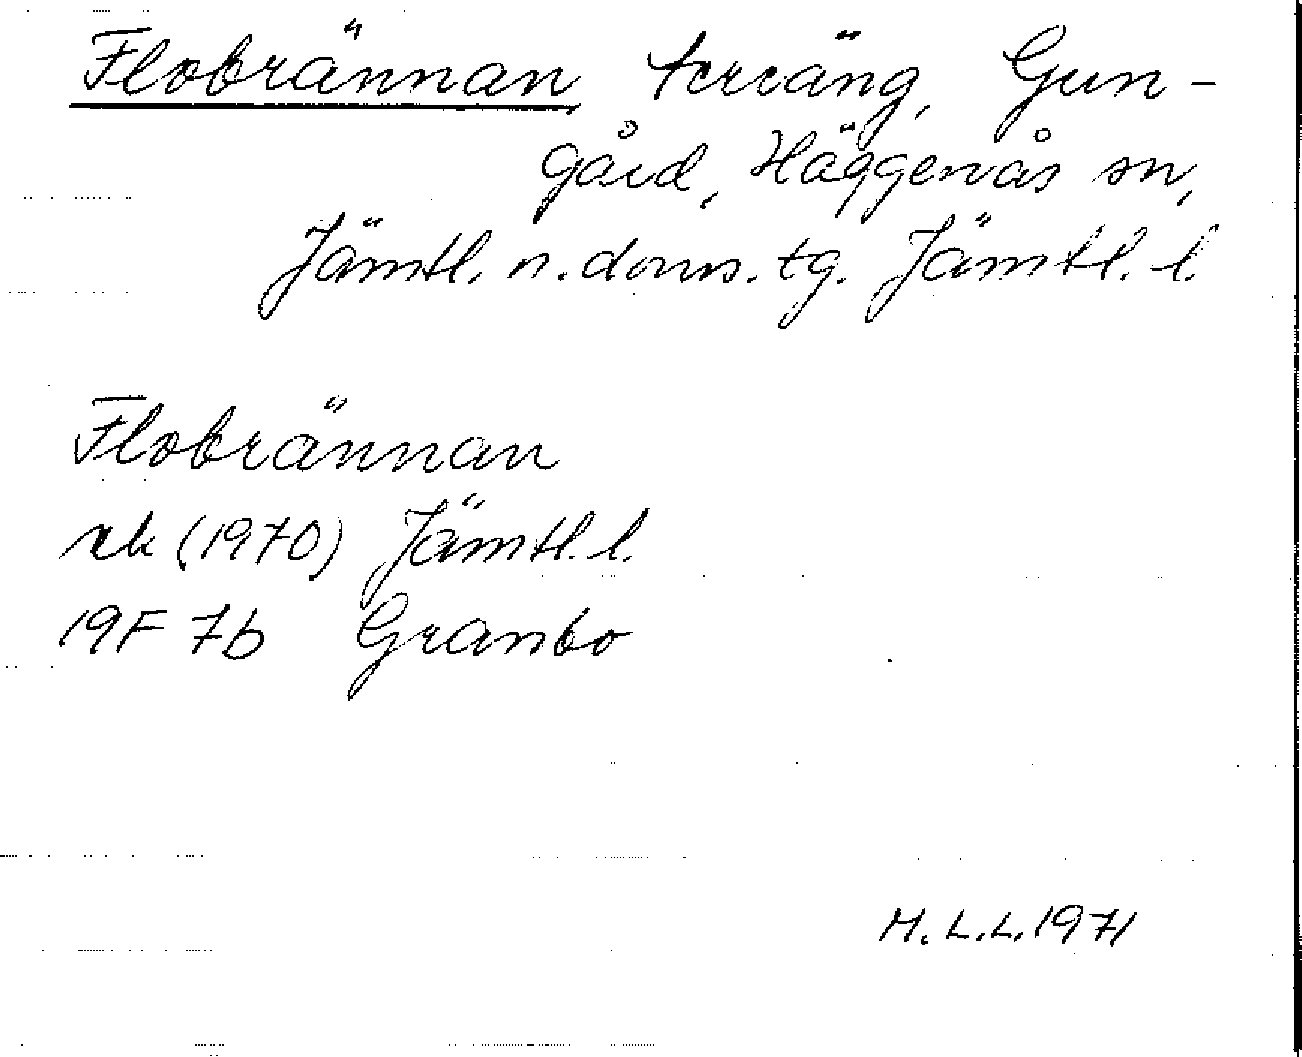 Flobrännan terräng, Gun-
gård, Häggenås sn,
Jämtl. n. doms. tg. Jämtl. l.
Flobrännan
rk (1970) Jämtl. l.
19F 7b Granbo
M. L. L. 1971